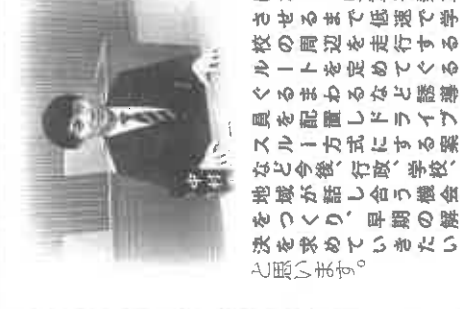 させるまで低速で学
校の周辺を走行する
ルートを定めてぐる
ぐるまわるなど誘導
員を配置しドライブ
スルー方式にする案
など今後、行政、学校、
地域が話し合う機会
をつくり、早期の解
決を求めていきたい
と思います。